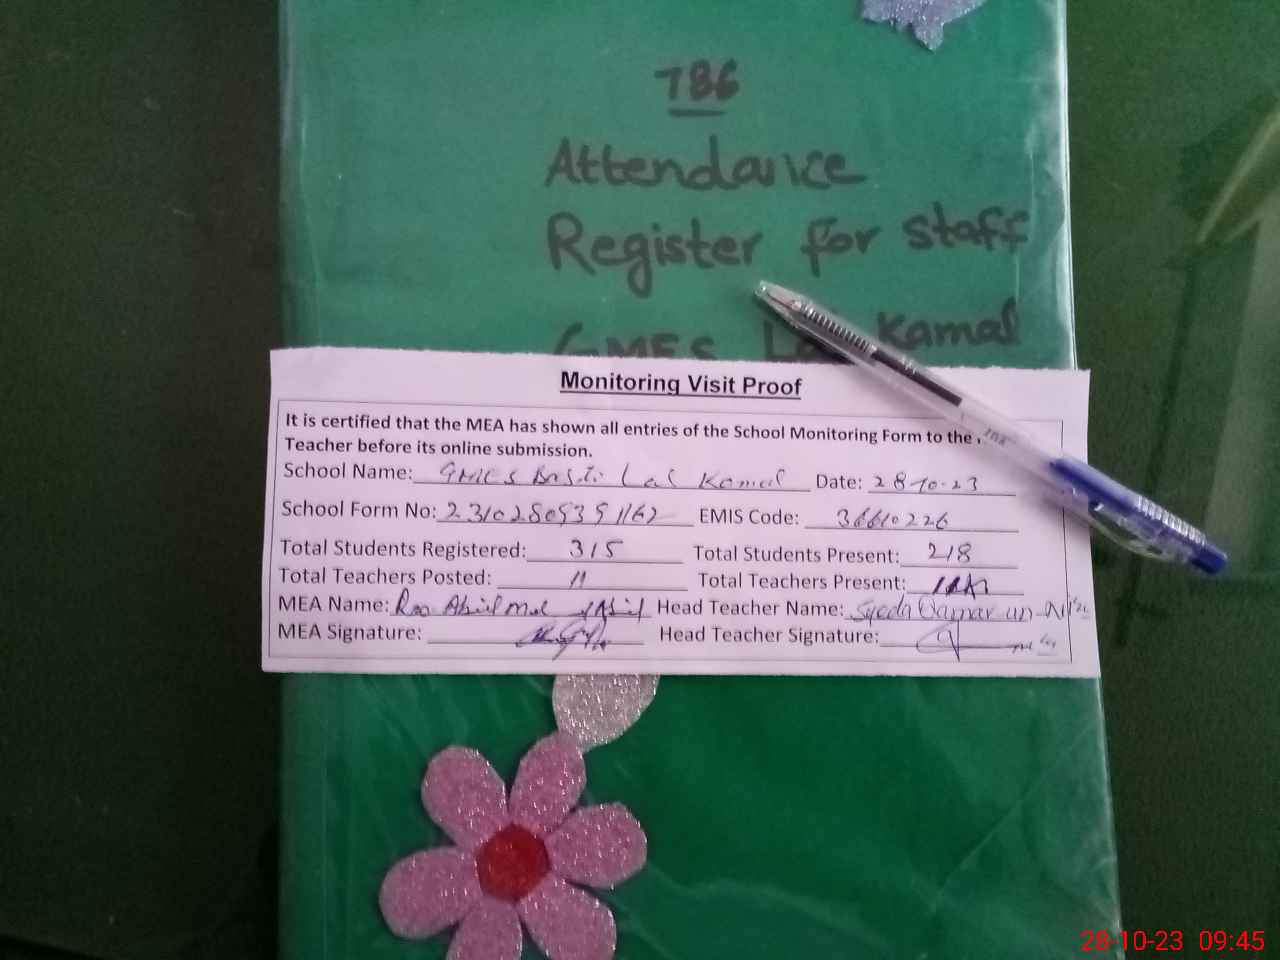 786
Attendance
Register for staff
GMES Lal Kamal
Monitoring Visit Proof
It is certified that the MEA has shown all entries of the School Monitoring Form to the
Teacher before its online submission.
School Name: GMES Basti Lal Kamal Date: 28-10-23
School Form No: 23102809391162 EMIS Code: 36610226
Total Students Registered: 315 Total Students Present: 218
Total Teachers Posted: 11 Total Teachers Present:
MEA Name: Rao Head Teacher Name: Syeda Qamar un-Nisa
MEA Signature: Head Teacher Signature:
28-10-23 09:45